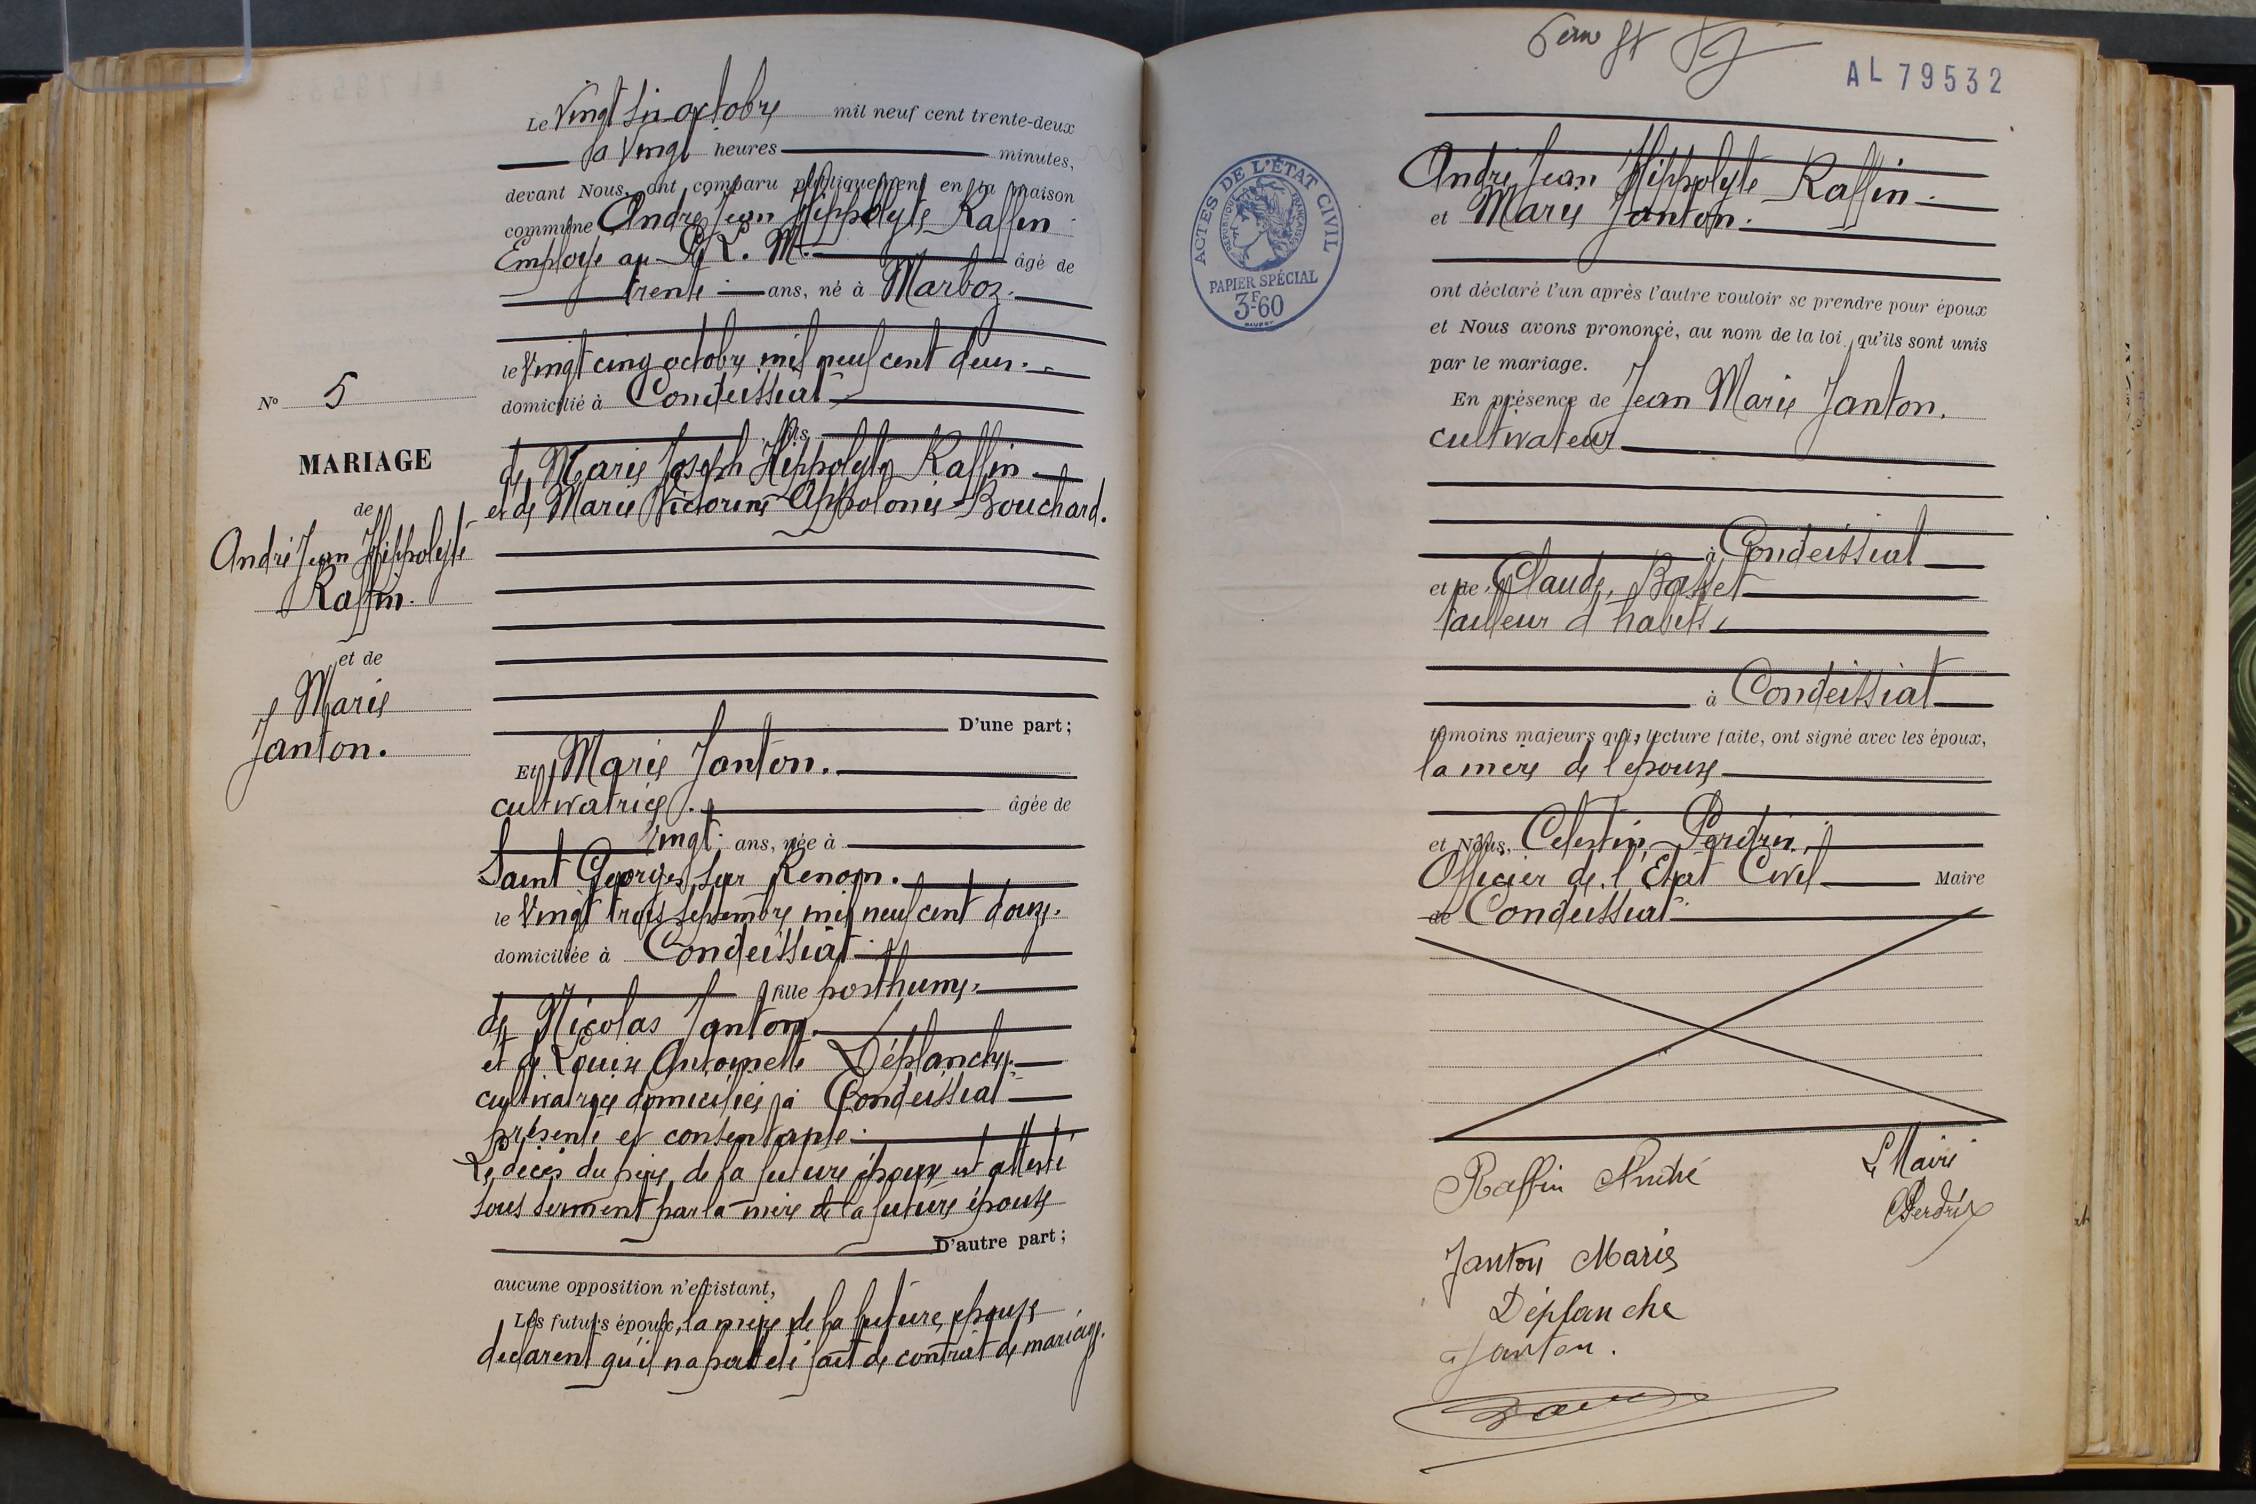 Le Vingt six octobre mil neuf cent trente-deux
à Vingt heures minutes,
devant Nous, ont comparu publiquement en la maison
commune André Jean Hippolyte Raffin
Employé au P. L. M. âgé de
trente ans, né à Marboz.
le Vingt cinq octobre mil neuf cent deux.
domicilié à Condeissiat
fils
de Marie Joseph Hippolyte Raffin
et de Marie Victorine Appolonie Bouchard.
D'une part;
Et Marie Janton.
cultivatrice. âgée de
Vingt ans, née à
Saint Georges sur Renom.
le Vingt trois septembre mil neuf cent douze.
domiciliée à Condeissiat
fille posthume.
de Nicolas Janton.
et de Louise Antoinette Déplanche.
cultivatrice domiciliée à Condeissiat
présente et consentante.
Le décès du père de la future épouse est attesté
sous serment par la mère de la future épouse
D'autre part;
aucune opposition n'existant,
Les futurs époux, la mère de la future épouse
déclarent qu'il n'a pas été fait de contrat de mariage.
N° 5
MARIAGE
de
André Jean Hippolyte
Raffin.
et de
Marie
Janton.
AL 79532
ACTES DE L'ÉTAT CIVIL
RÉPUBLIQUE FRANÇAISE
PAPIER SPÉCIAL
3F.60
André Jean Hippolyte Raffin
et Marie Janton.
ont déclaré l'un après l'autre vouloir se prendre pour époux
et Nous avons prononcé, au nom de la loi, qu'ils sont unis
par le mariage.
En présence de Jean Marie Janton.
cultivateur
à Condeissiat
et de Claude Basset
tailleur d'habits,
à Condeissiat
témoins majeurs qui, lecture faite, ont signé avec les époux,
la mère de l'épouse
et Nous, Celestin Perdrix,
Officier de l'Etat Civil Maire
de Condeissiat
Raffin André
Le Maire
CPerdrix
Janton Marie
Déplanche
Janton.